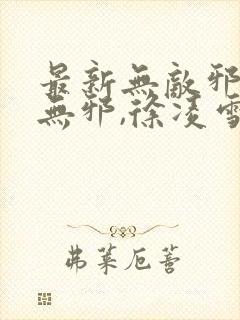 最新無敵邪
無邪,徐凌雪
弗莱厄蒈